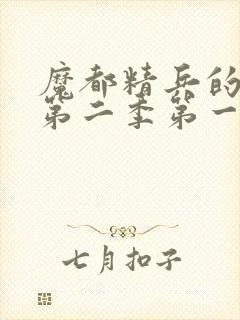 魔都精兵的
第二季第一
七月扣子